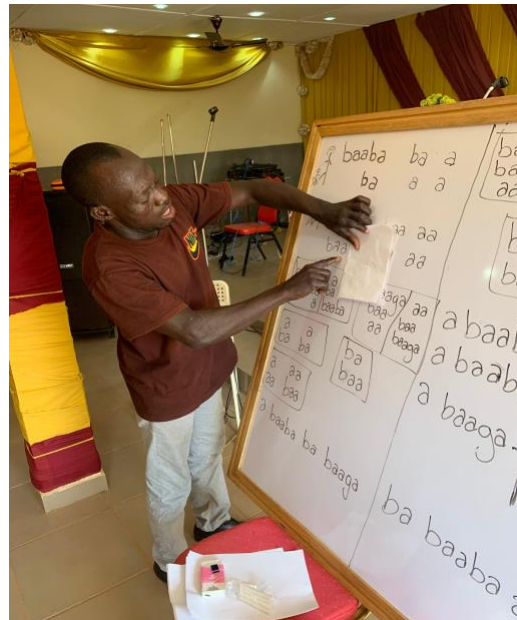 baaba ba a
ba a a
baa aa aa
aa
baaba
baaga aa
baa baa
aa baaga
a a
ba
a aa
aa baa
ba
baa
a baaba ba baaga
a baab
a baab
a baaga
ba baaba a